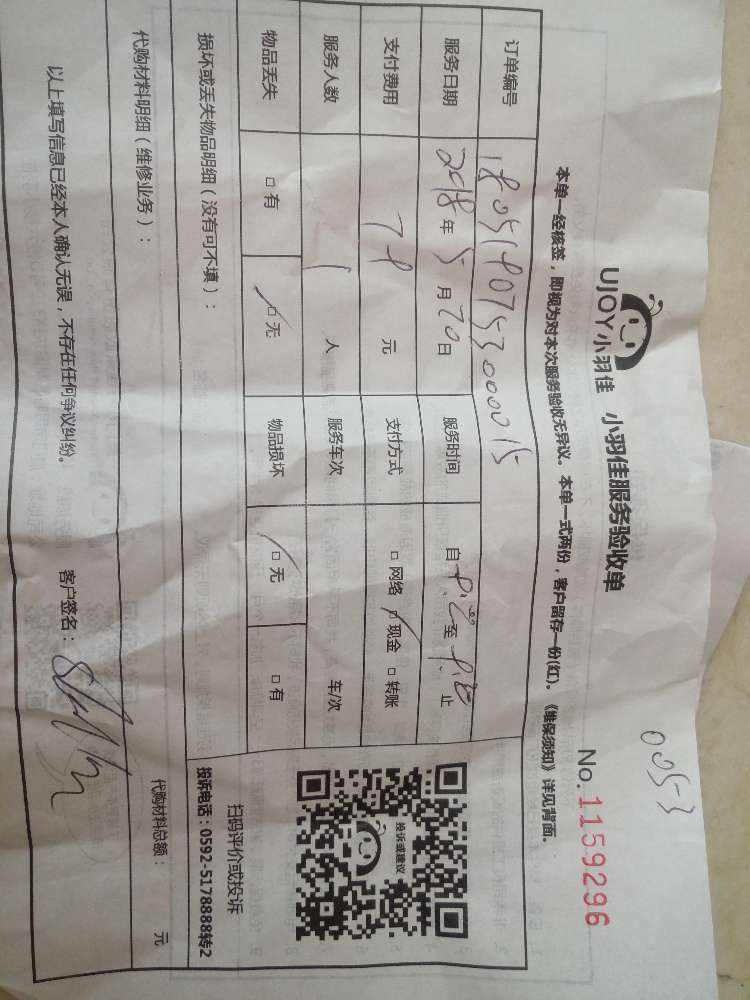 0053
UJOY小羽佳 小羽佳服务验收单
No.1159296
本单一经核签，即视为对本次服务验收无异议。本单一式两份，客户留存一份(红)。《维保须知》详见背面。
订单编号
服务日期 2018 年 5 月 20 日 服务时间 自 至 止
支付费用 78 元 支付方式 □网络 □现金 □转账
服务人数 1 人 服务车次 车/次
物品丢失 □有 □无 物品损坏 □无 □有
投诉或建议
扫码评价或投诉
投诉电话：0592-5178888转2
损坏或丢失物品明细（没有可不填）：
代购材料明细（维修业务）：
代购材料总额： 元
以上填写信息已经本人确认无误，不存在任何争议纠纷。 客户签名：